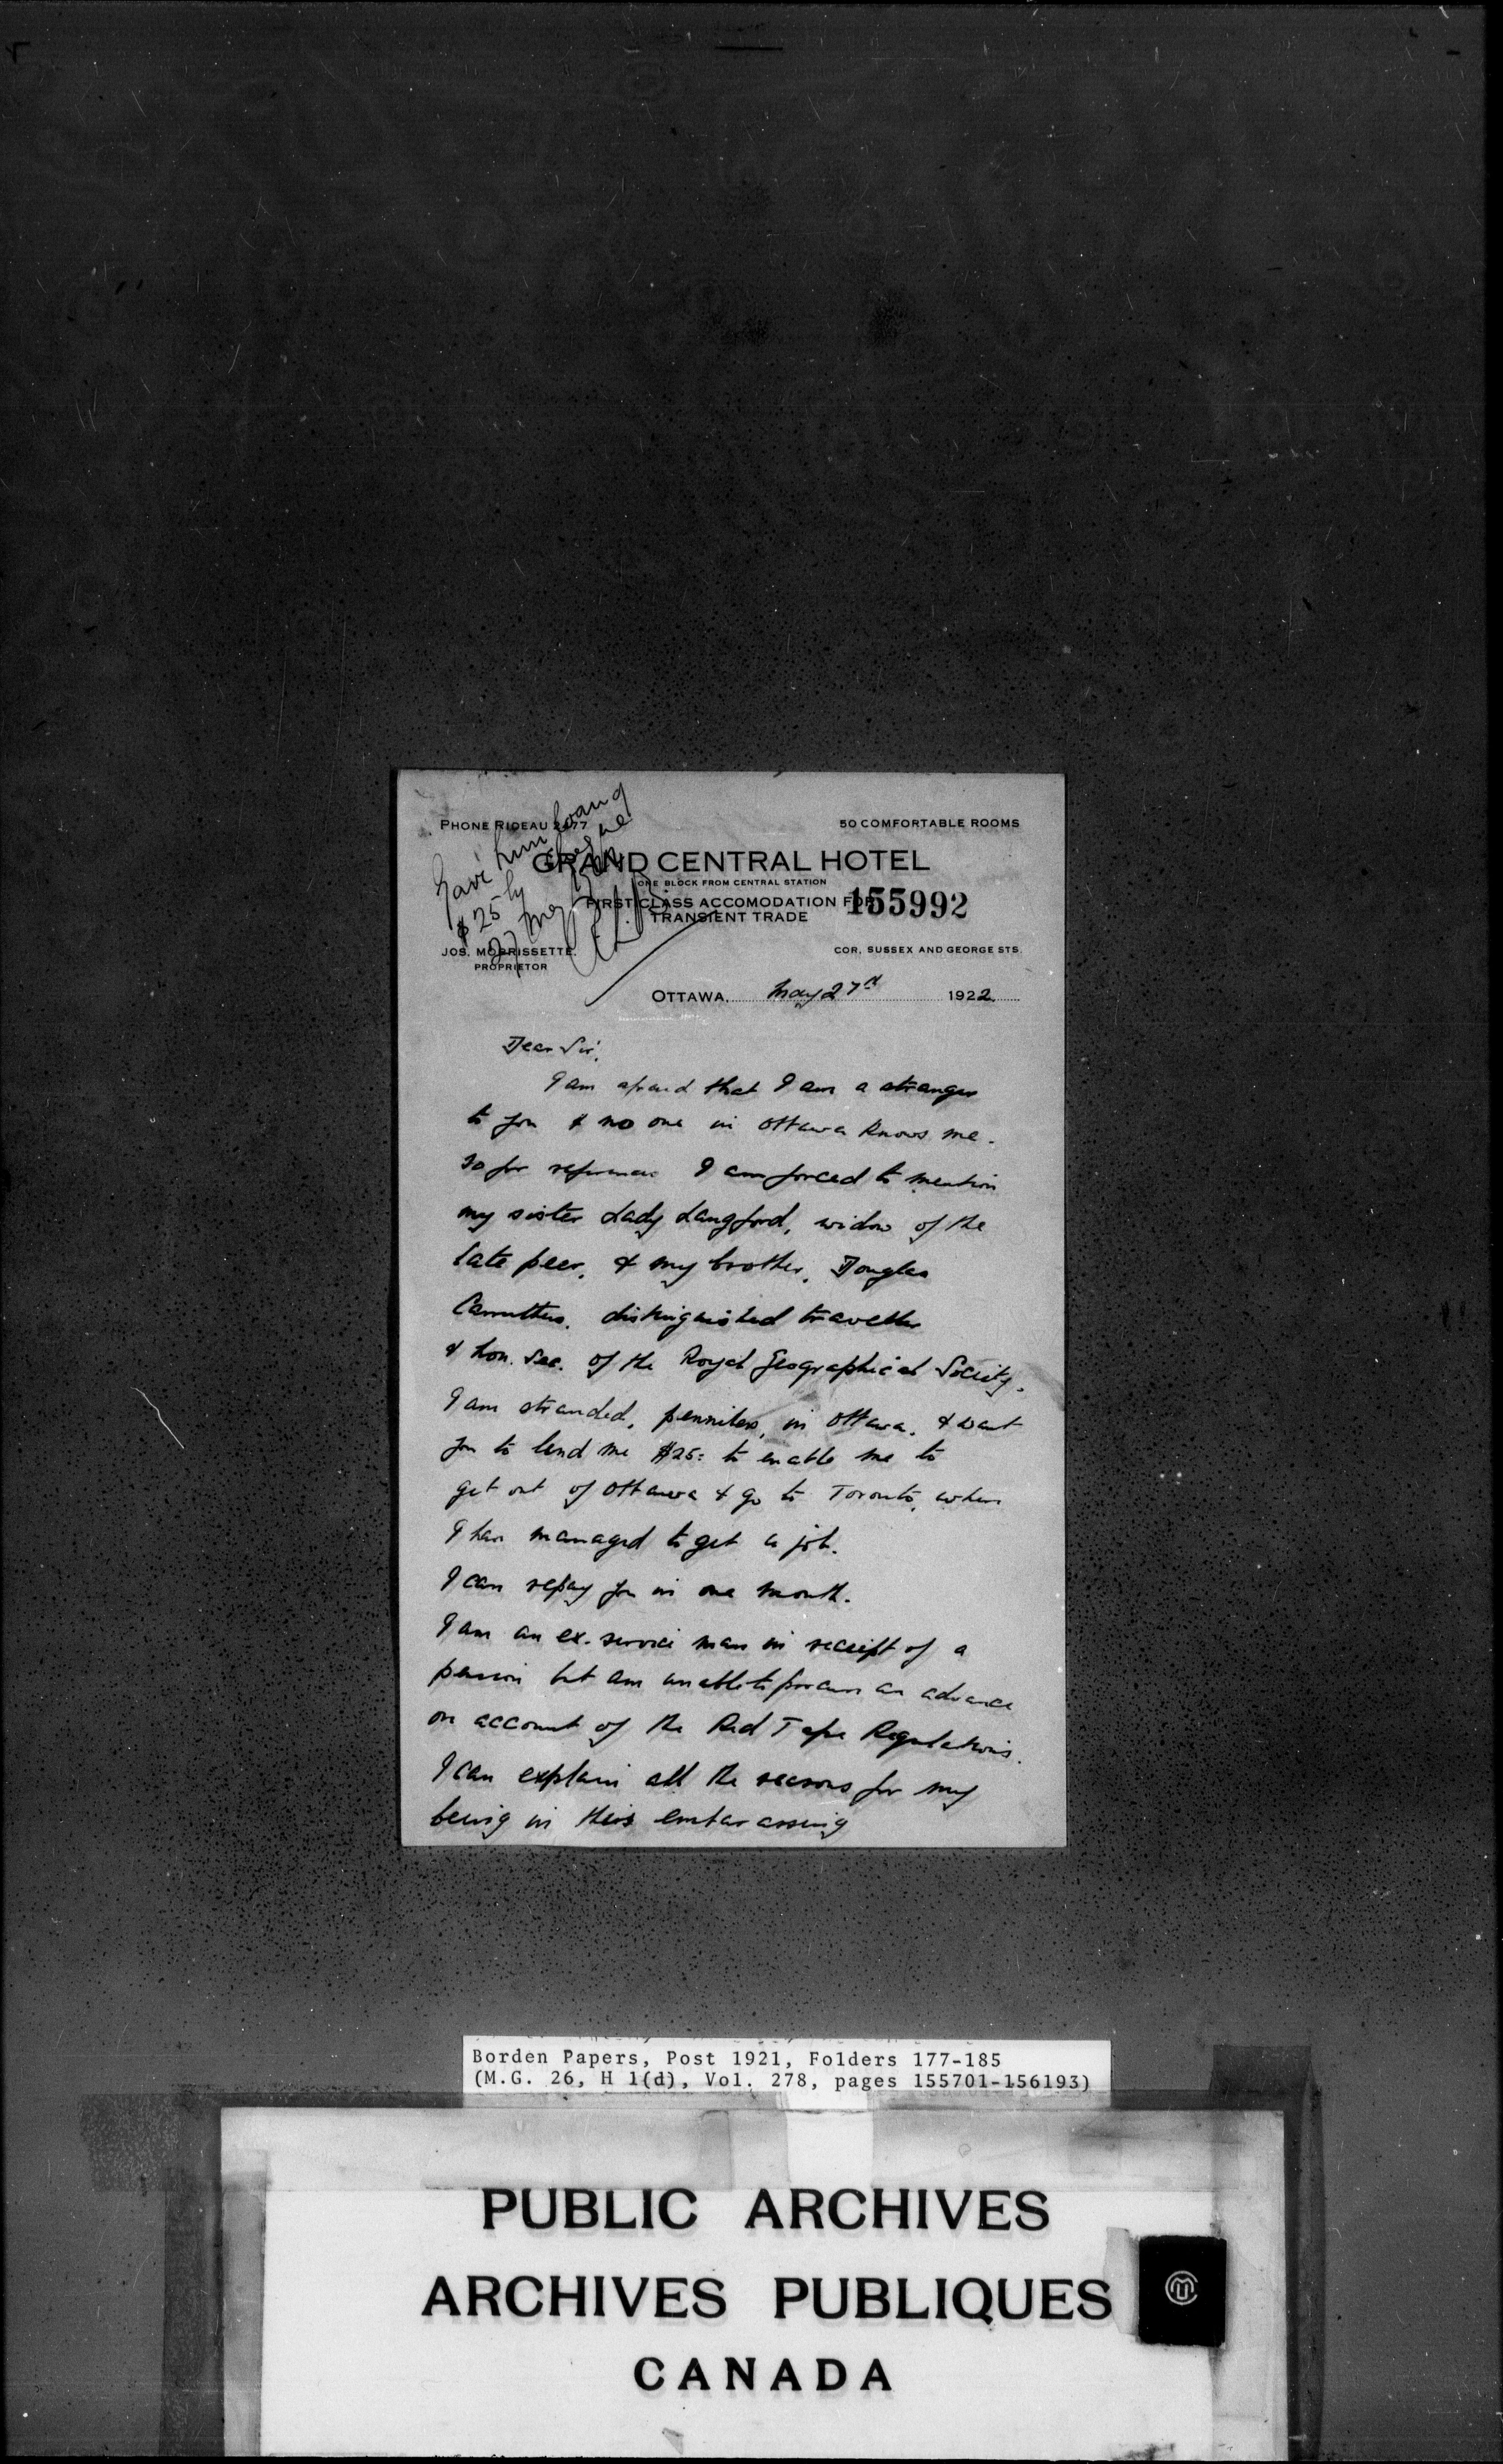 Gave him loan of
$25 by cheque
27 May 1922
R.L.B.
PHONE RIDEAU 2477
50 COMFORTABLE ROOMS
GRAND CENTRAL HOTEL
ONE BLOCK FROM CENTRAL STATION
FIRST CLASS ACCOMODATION FOR
TRANSIENT TRADE
155992
JOS. MORRISSETTE.
PROPRIETOR
COR. SUSSEX AND GEORGE STS.
OTTAWA, May 27th 1922
Dear Sir,
I am afraid that I am a stranger
to you & no one in Ottawa knows me.
So for reference I am forced to mention
my sister Lady Langford, widow of the
late peer, & my brother, Douglas
Carruthers, distinguished traveller
& hon. Sec. of the Royal Geographical Society.
I am stranded, penniless, in Ottawa, & want
you to lend me $25: to enable me to
get out of Ottawa & go to Toronto, where
I have managed to get a job.
I can repay you in one month.
I am an ex-service man in receipt of a
pension but am unable to procure an advance
on account of the Red Tape Regulations.
I can explain all the reasons for my
being in this embarassing
Borden Papers, Post 1921, Folders 177-185
(M.G. 26, H 1(d), Vol. 278, pages 155701-156193)
PUBLIC ARCHIVES
ARCHIVES PUBLIQUES
CANADA